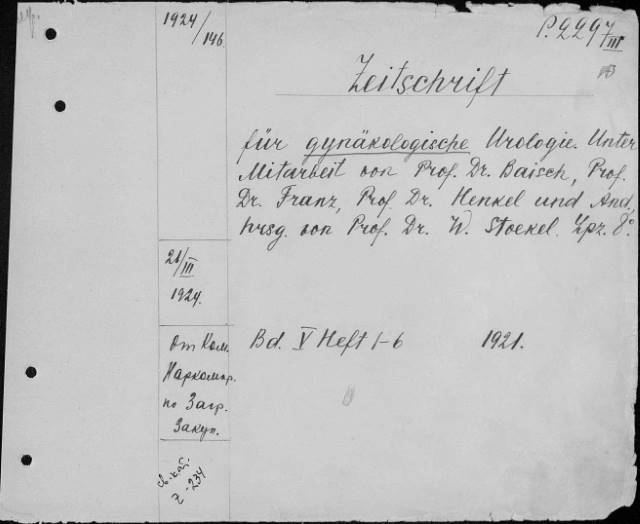 1924/146
P.2297/III
Zeitschrift
für gynäkologische Urologie. Unter
Mitarbeit von Prof. Dr. Baisch, Prof.
Dr. Franz, Prof. Dr. Henkel und And.
hrsg. von Prof. Dr. W. Stoekel. Lpz. 8°
21/III
1924.
Bd. V Heft 1-6 1921.
от Ком.
по Загр.
Закуп.
св. кат.
z-234